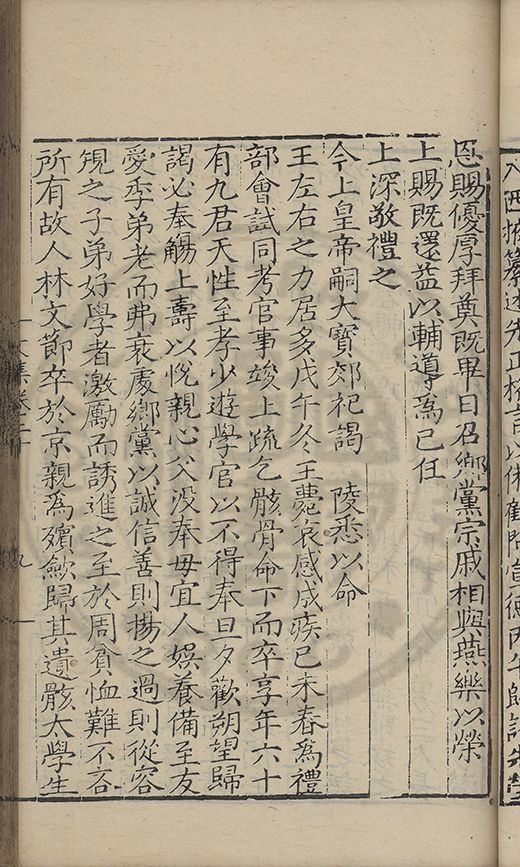 恩賜優厚拜奠既畢日召鄉黨宗戚相與燕樂以榮
上賜既還益以輔導爲已任
上深敬禮之
今上皇帝嗣大寶郊祀謁　陵悉以命
王左右之力居多戊午冬王薨哀感成疾已未春爲禮
部會試同考官事竣上疏乞骸骨命下而卒享年六十
有九君天性至孝少遊學官以不得奉旦夕歡朔望歸
謁必奉觴上壽以悦親心父没奉母宜人娱養備至友
愛季弟老而弗衰處鄉黨以誠信善則揚之過則從容
規之子弟好學者激勵而誘進之至於周貧恤難不吝
所有故人林文節卒於京親爲殯歛歸其遺骸太學生
文集卷二
九